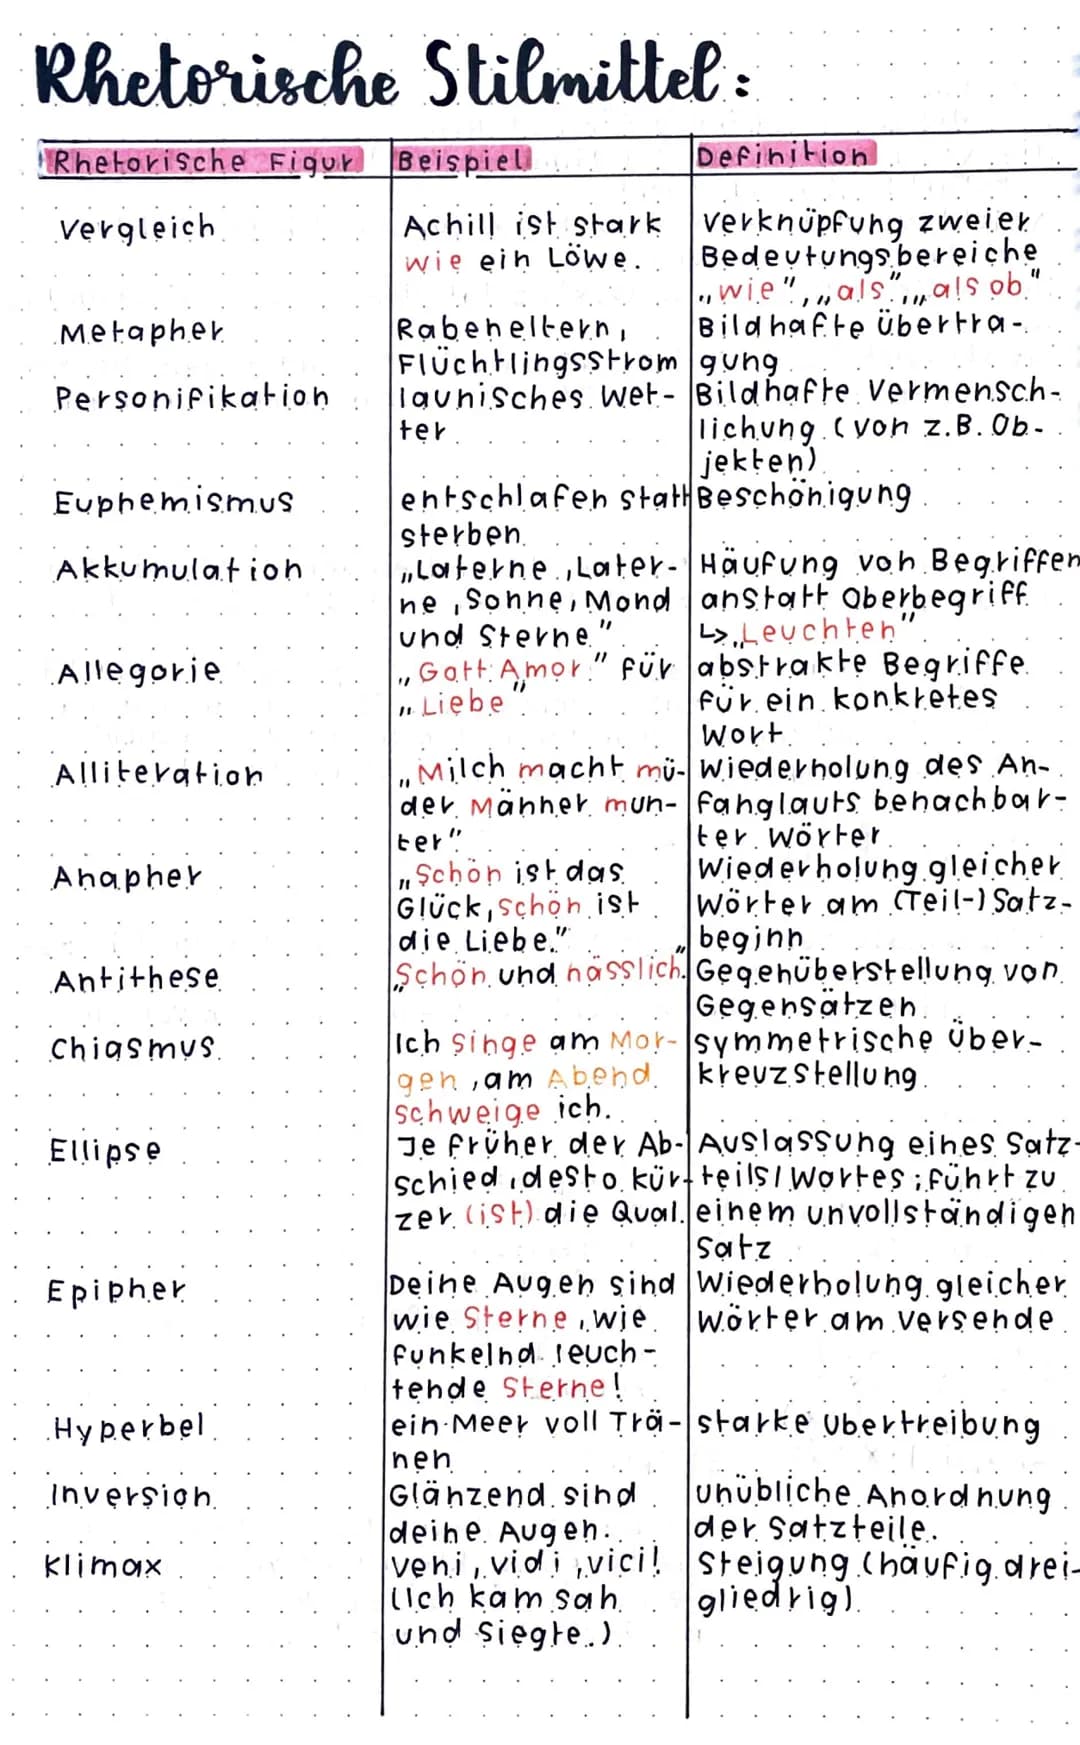 Rhetorische Stilmittel:
Rhetorische Figur Beispiel Definition
Vergleich Achill ist stark Verknüpfung zweier
wie ein Löwe. Bedeutungsbereiche
„wie", „als", „als ob"
Metapher Rabeneltern, Bildhafte Übertra-
Flüchtlingsstrom gung
Personifikation launisches Wet- Bildhafte Vermensch-
ter lichung (von z.B. Ob-
jekten)
Euphemismus entschlafen statt Beschönigung
sterben
Akkumulation „Laterne, Later- Häufung von Begriffen
ne, Sonne, Mond anstatt Oberbegriff
und Sterne" ↳ „Leuchten"
Allegorie „Gott Amor" für abstrakte Begriffe
„Liebe" für ein konkretes
Wort
Alliteration „Milch macht mü- Wiederholung des An-
der Männer mun- fanglauts benachbar-
ter" ter Wörter
Anapher „Schön ist das Wiederholung gleicher
Glück, schön ist Wörter am (Teil-) Satz-
die Liebe." beginn
Antithese „Schön und hässlich." Gegenüberstellung von
Gegensätzen
Chiasmus Ich singe am Mor- symmetrische Über-
gen, am Abend kreuzstellung
schweige ich.
Ellipse Je früher der Ab- Auslassung eines Satz-
schied, desto kür- teils/Wortes; führt zu
zer (ist) die Qual. einem unvollständigen
Satz
Epipher Deine Augen sind Wiederholung gleicher
wie Sterne, wie Wörter am Versende
funkelnd leuch-
tende Sterne!
Hyperbel ein Meer voll Trä- starke Übertreibung
nen
Inversion Glänzend sind unübliche Anordnung
deine Augen. der Satzteile.
Klimax veni, vidi, vici! Steigung (häufig drei-
(Ich kam sah gliedrig)
und siegte.)